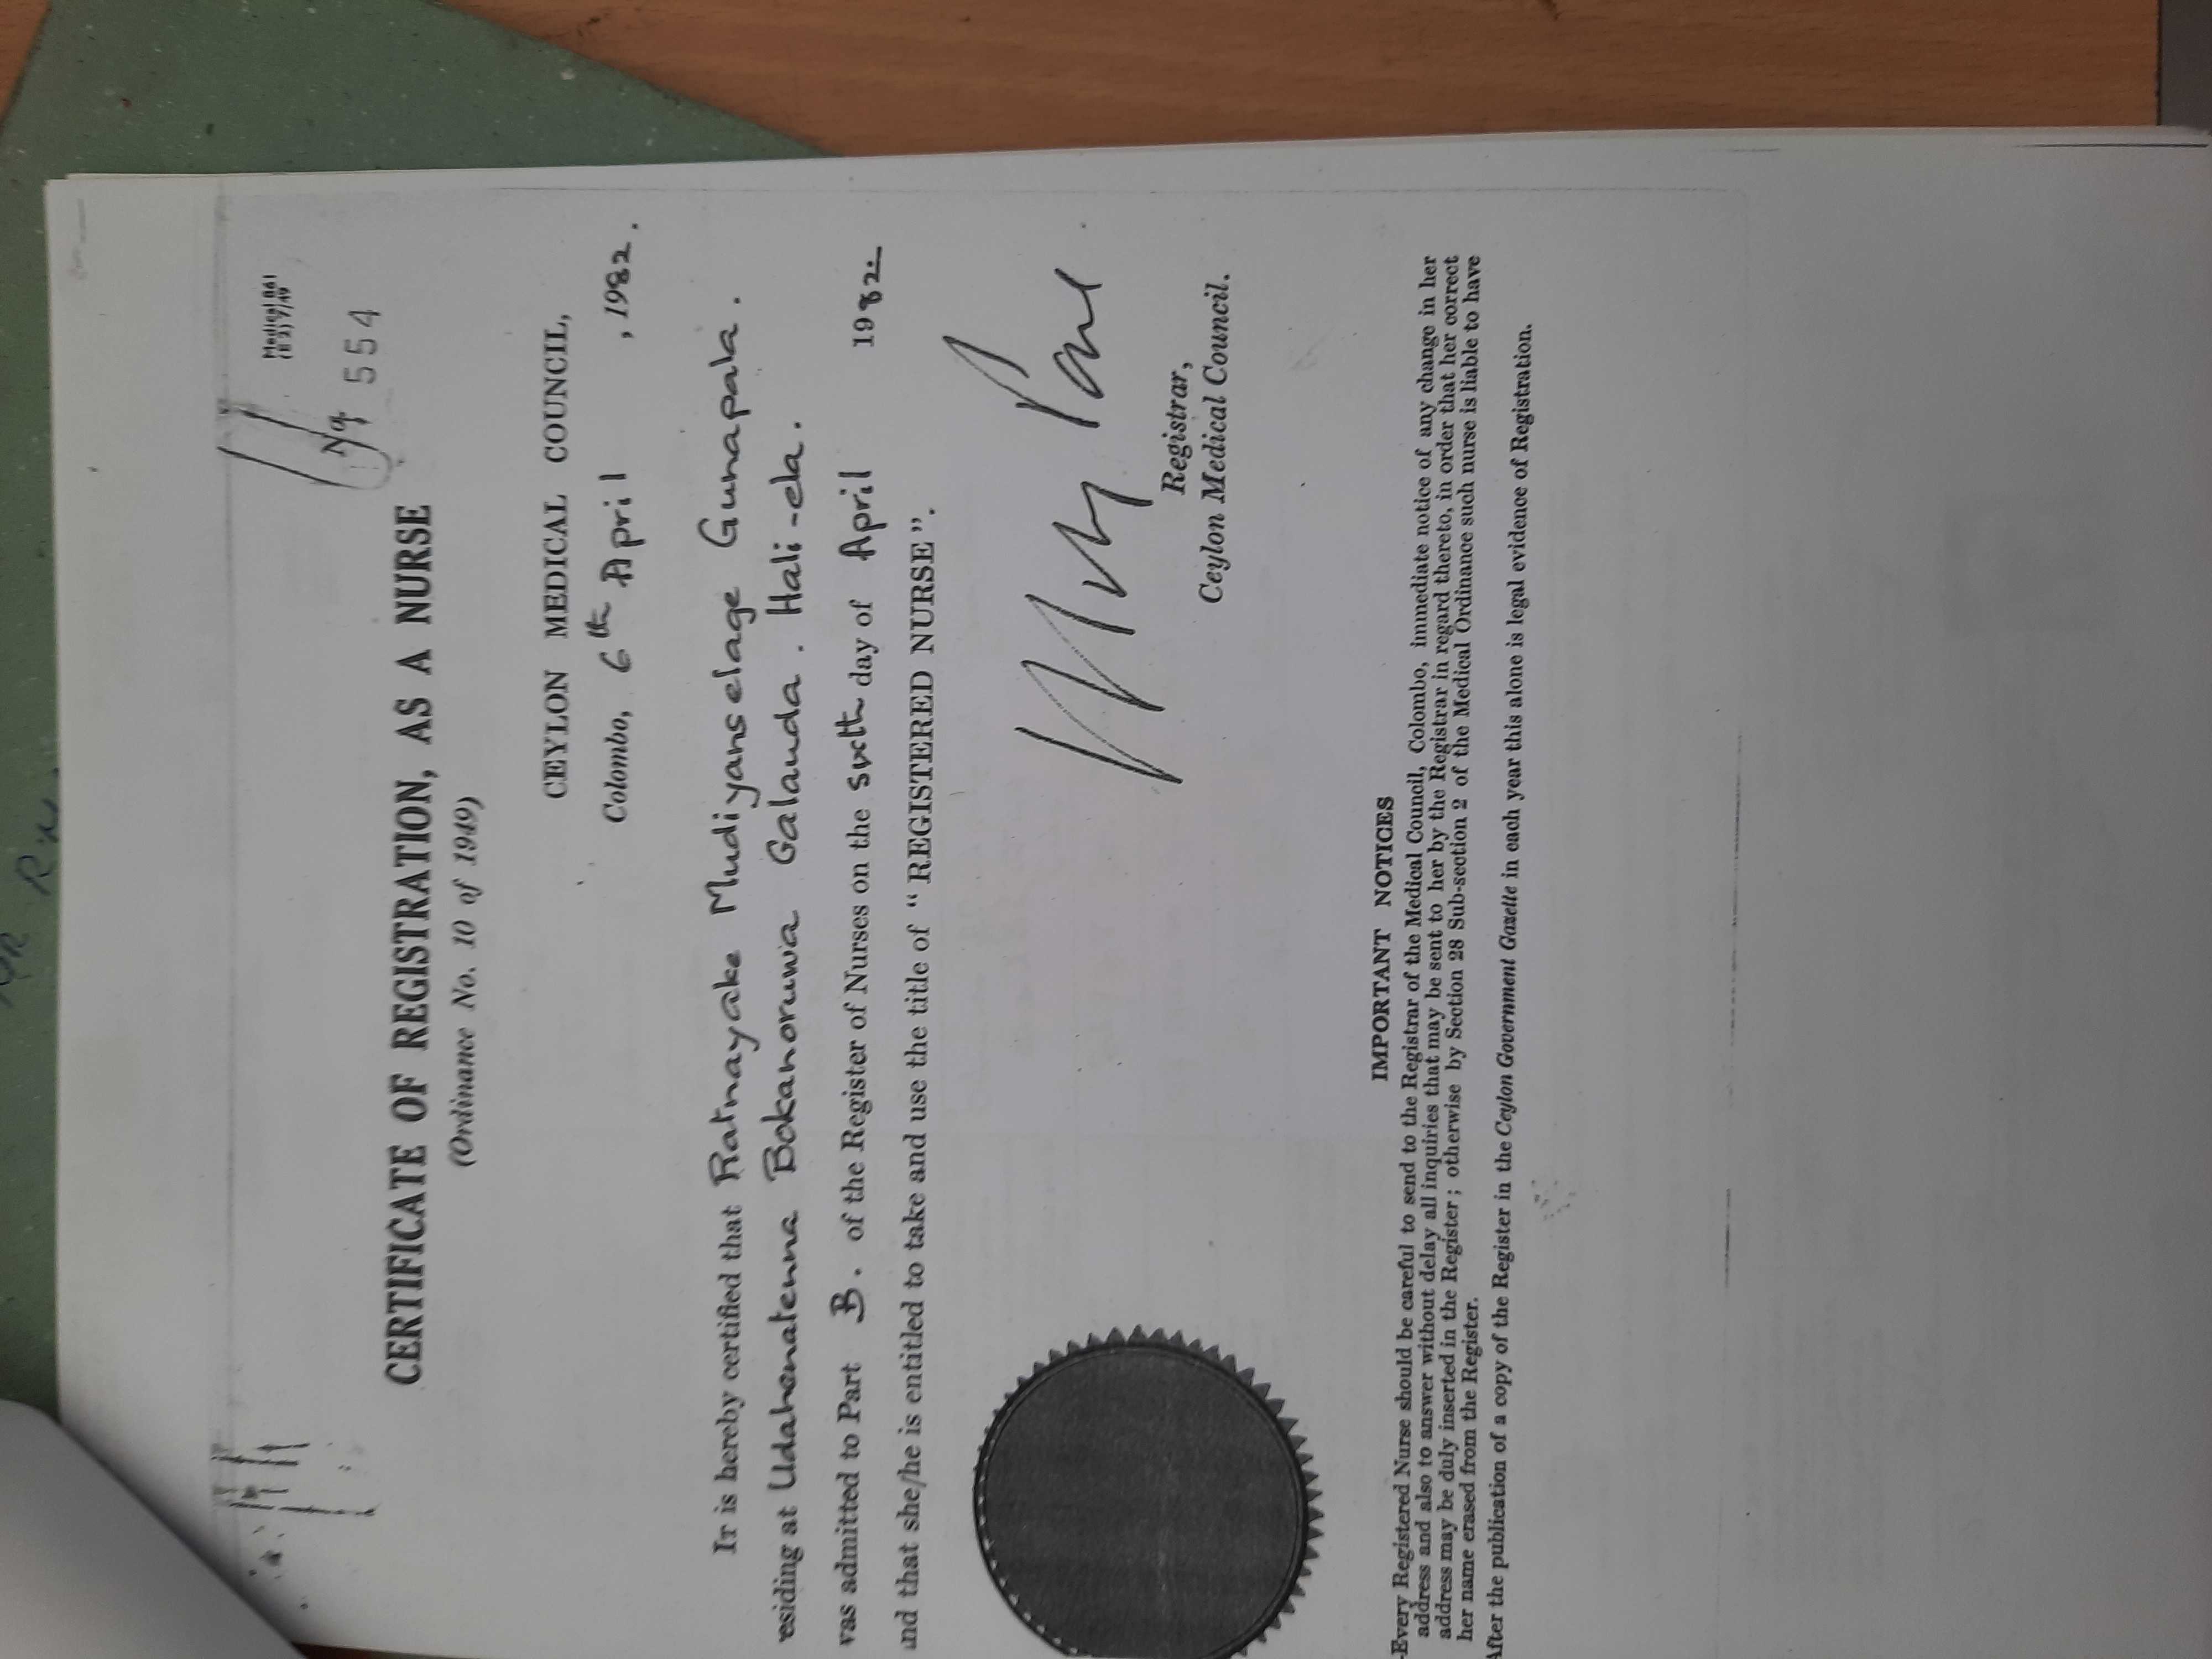 Medical 861
No 554
CERTIFICATE OF REGISTRATION, AS A NURSE
(Ordinance No. 10 of 1949)
CEYLON MEDICAL COUNCIL,
Colombo, 6th April , 1982.
IT is hereby certified that Ratnayake Mudiyanselage Gunapala.
esiding at Udahenatenna Bokanoruwa Galauda. Hali-ela.
vas admitted to Part B. of the Register of Nurses on the sixth day of April 1982.
and that she/he is entitled to take and use the title of "REGISTERED NURSE".
Registrar,
Ceylon Medical Council.
IMPORTANT NOTICES
-Every Registered Nurse should be careful to send to the Registrar of the Medical Council, Colombo, immediate notice of any change in her
address and also to answer without delay all inquiries that may be sent to her by the Registrar in regard thereto, in order that her correct
address may be duly inserted in the Register; otherwise by Section 28 Sub-section 2 of the Medical Ordinance such nurse is liable to have
her name erased from the Register.
After the publication of a copy of the Register in the Ceylon Government Gazette in each year this alone is legal evidence of Registration.